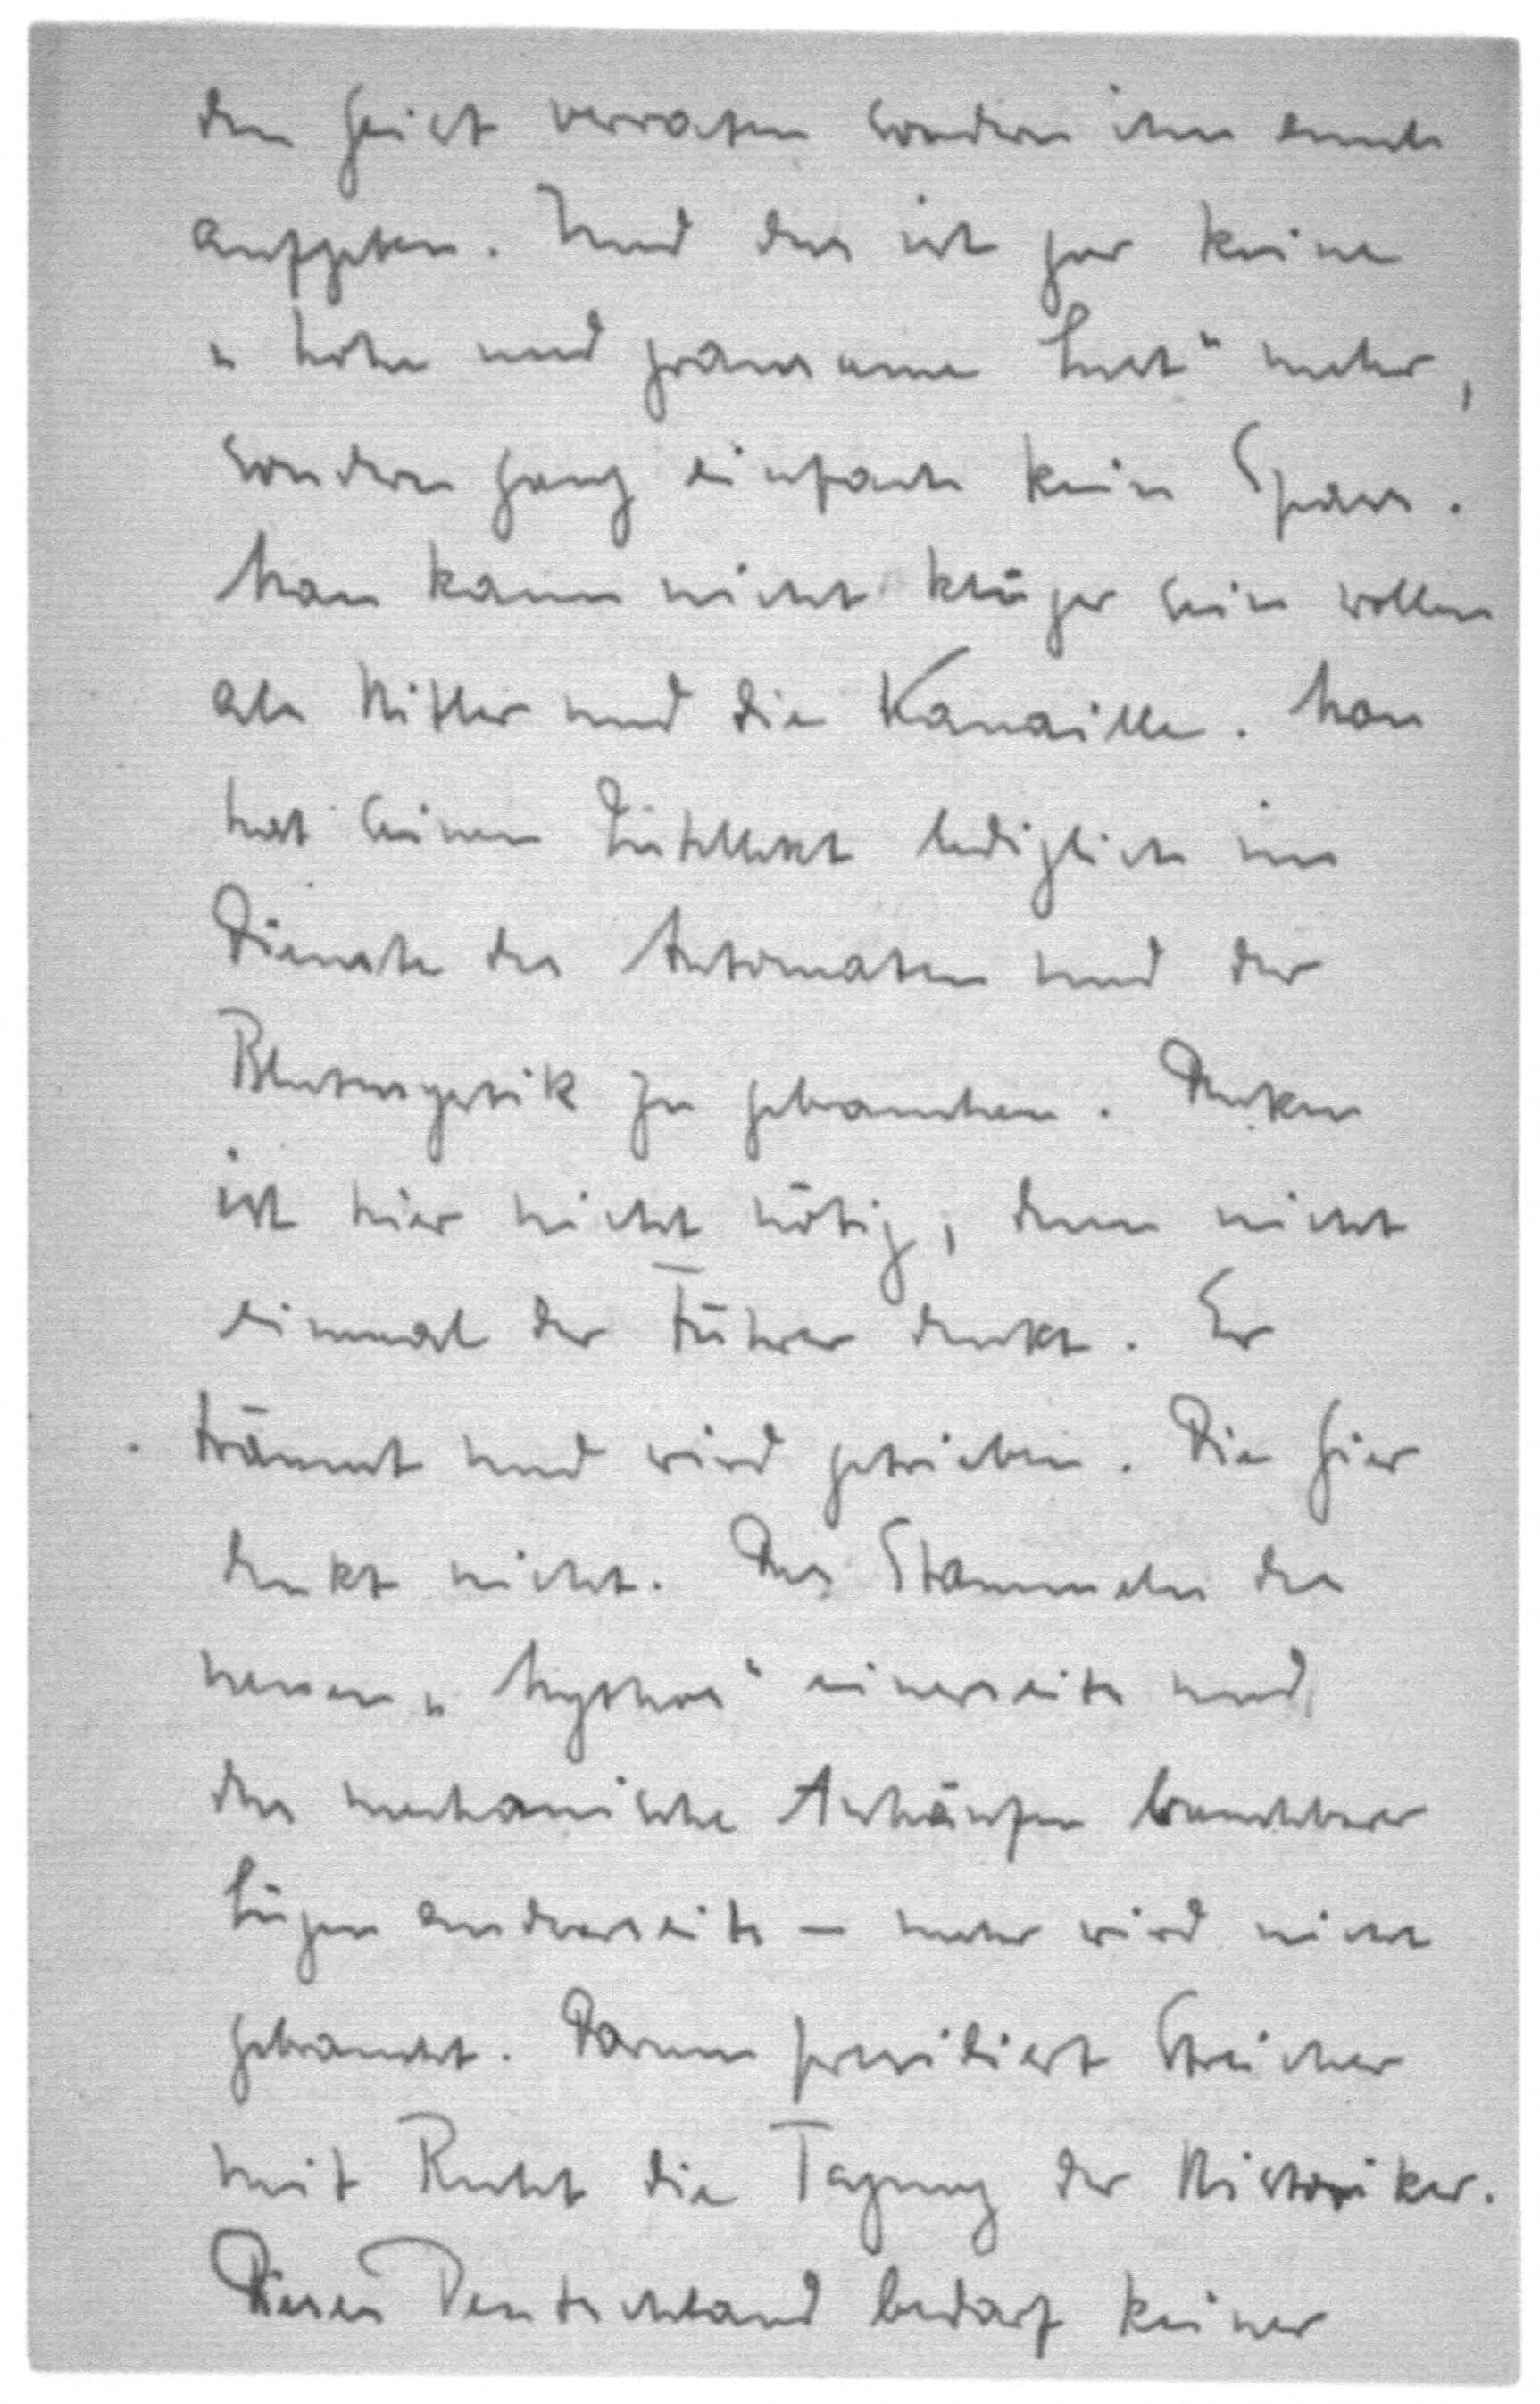 den Geist verraten sondern ihn auch
aufgeben. Und das ist gar keine
„hohe und grausame Lust" mehr,
sondern ganz einfach kein Spass.
Man kann nicht klüger sein wollen
als Hitler und die Kanaille. Man
hat seinen Intellekt lediglich im
Dienste des Automaten und der
Blutmystik zu gebrauchen. Denken
ist hier nicht nötig, denn nicht
einmal der Führer denkt. Er
träumt und wird getrieben. Die Gier
denkt nicht. Das Stammeln des
neuen „Mythos" einerseits und
das mechanische Anhäufen brauchbarer
Lügen anderseits — mehr wird nicht
gebraucht. Darum präsidiert Streicher
mit Recht die Tagung der Historiker.
Dieses Deutschland bedarf keiner